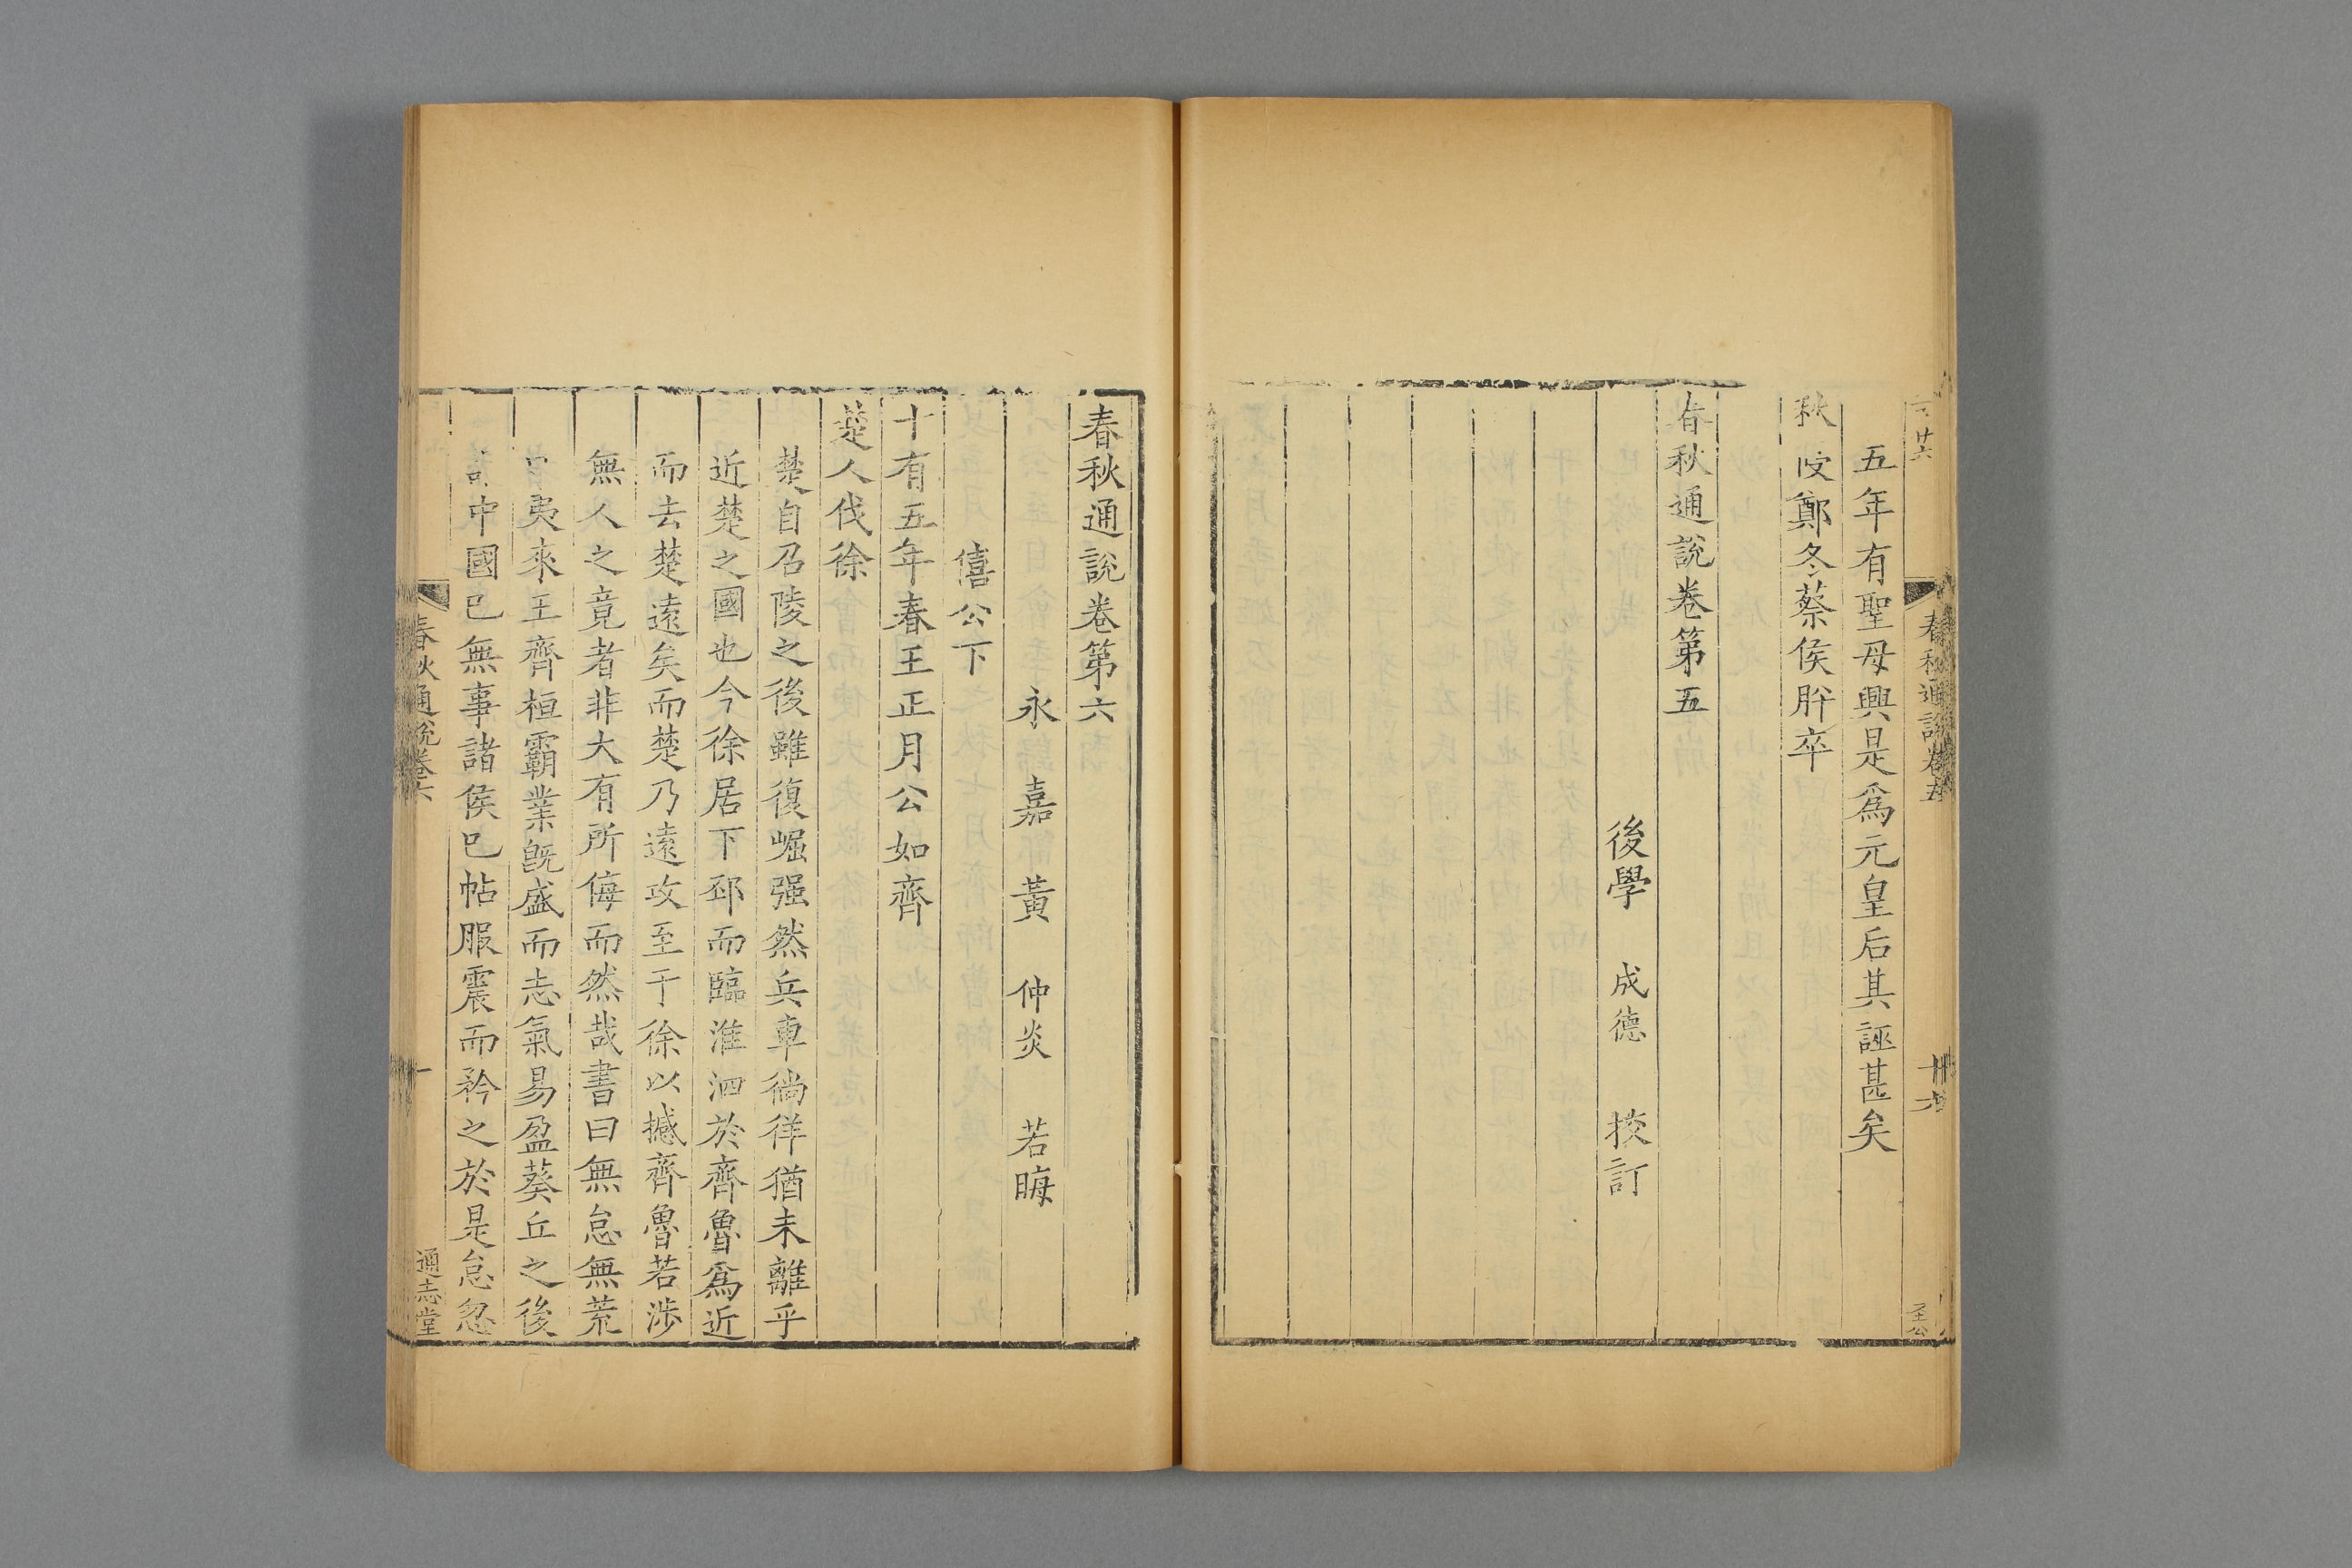 五年有聖母興是爲元皇后其誣甚矣
秋 鄭冬蔡侯肸卒
春秋通說卷第五
後學 成德 挍訂
春秋通說卷五
春秋通說卷第六
永嘉黃仲炎若晦
僖公下
十有五年春王正月公如齊
楚人伐徐
楚自召陵之後雖復崛强然兵車徜徉猶未離乎
近楚之國也今徐居下邳而臨淮泗於齊魯爲近
而去楚遠矣而楚乃遠攻至于徐以撼齊魯若涉
無人之竟者非大有所侮而然哉書曰無怠無荒
夷來王齊桓霸業旣盛而志氣易盈葵丘之後
中國已無事諸侯已帖服震而矜之於是怠忽
春秋通說卷六
一
通志堂